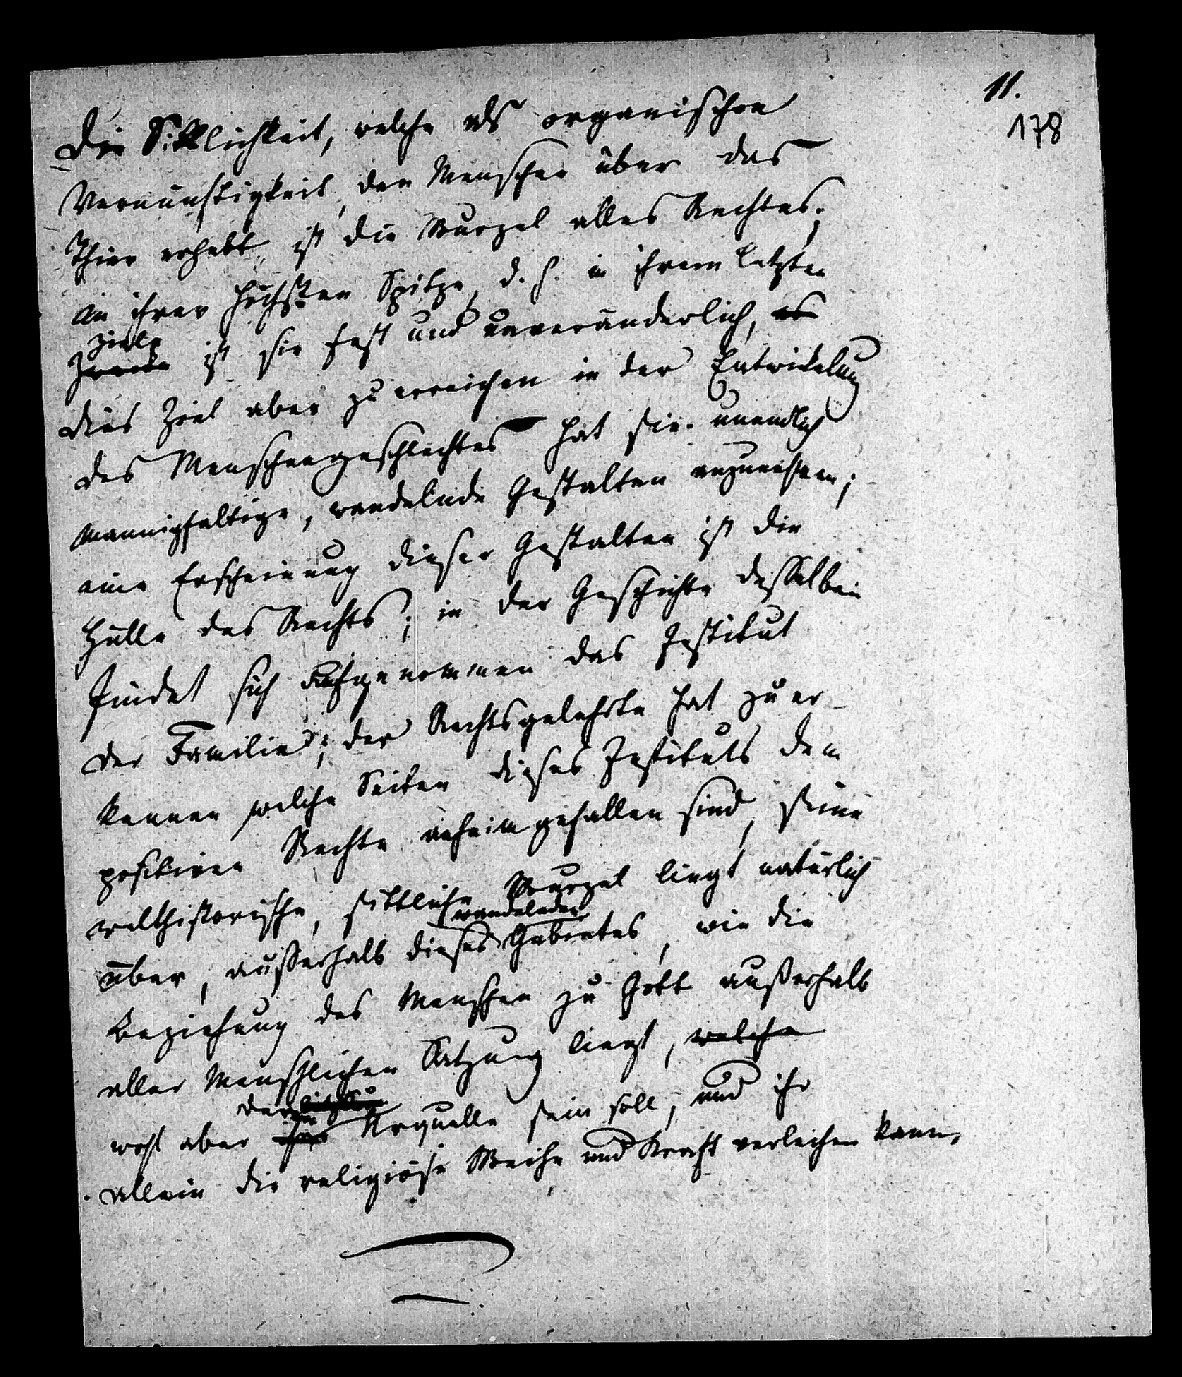 11.
178
Die Sittlichkeit, welche als organischen
Vernünftigkeit den Menschen über das
Thier erhebt, ist die Wurzel alles Rechtes;
in ihrer höchsten Spitze, d. h. in ihrem letzten
Ziele
Zwecke ist sie fest und unveränderlich, es
dies Ziel aber zu erreichen in der Entwickelung
des Menschengeschlechtes hat sie unendlich
mannigfaltige, wandelnde Gestalten anzuweisen;
eine Erscheinung dieser Gestalten ist die
Hülle des Rechts; in der Geschichte desselben
findet sich aufgenommen das Institut
der Familie; der Rechtsgelehrte hat zu er-
kennen welche Seiten dieses Instituts dem
positiven Rechte anheimgefallen sind, seine
welthistorische, sittliche Wurzel liegt natürlich
wandelnden
über, außerhalb dieses Gebietes, wie die
Beziehung des Menschen zu Gott außerhalb
aller menschlichen Satzung liegt, welche
der
wohl aber Urquelle sein soll, und ihr
allein die religiöse Weihe und Kraft verleihen kann.